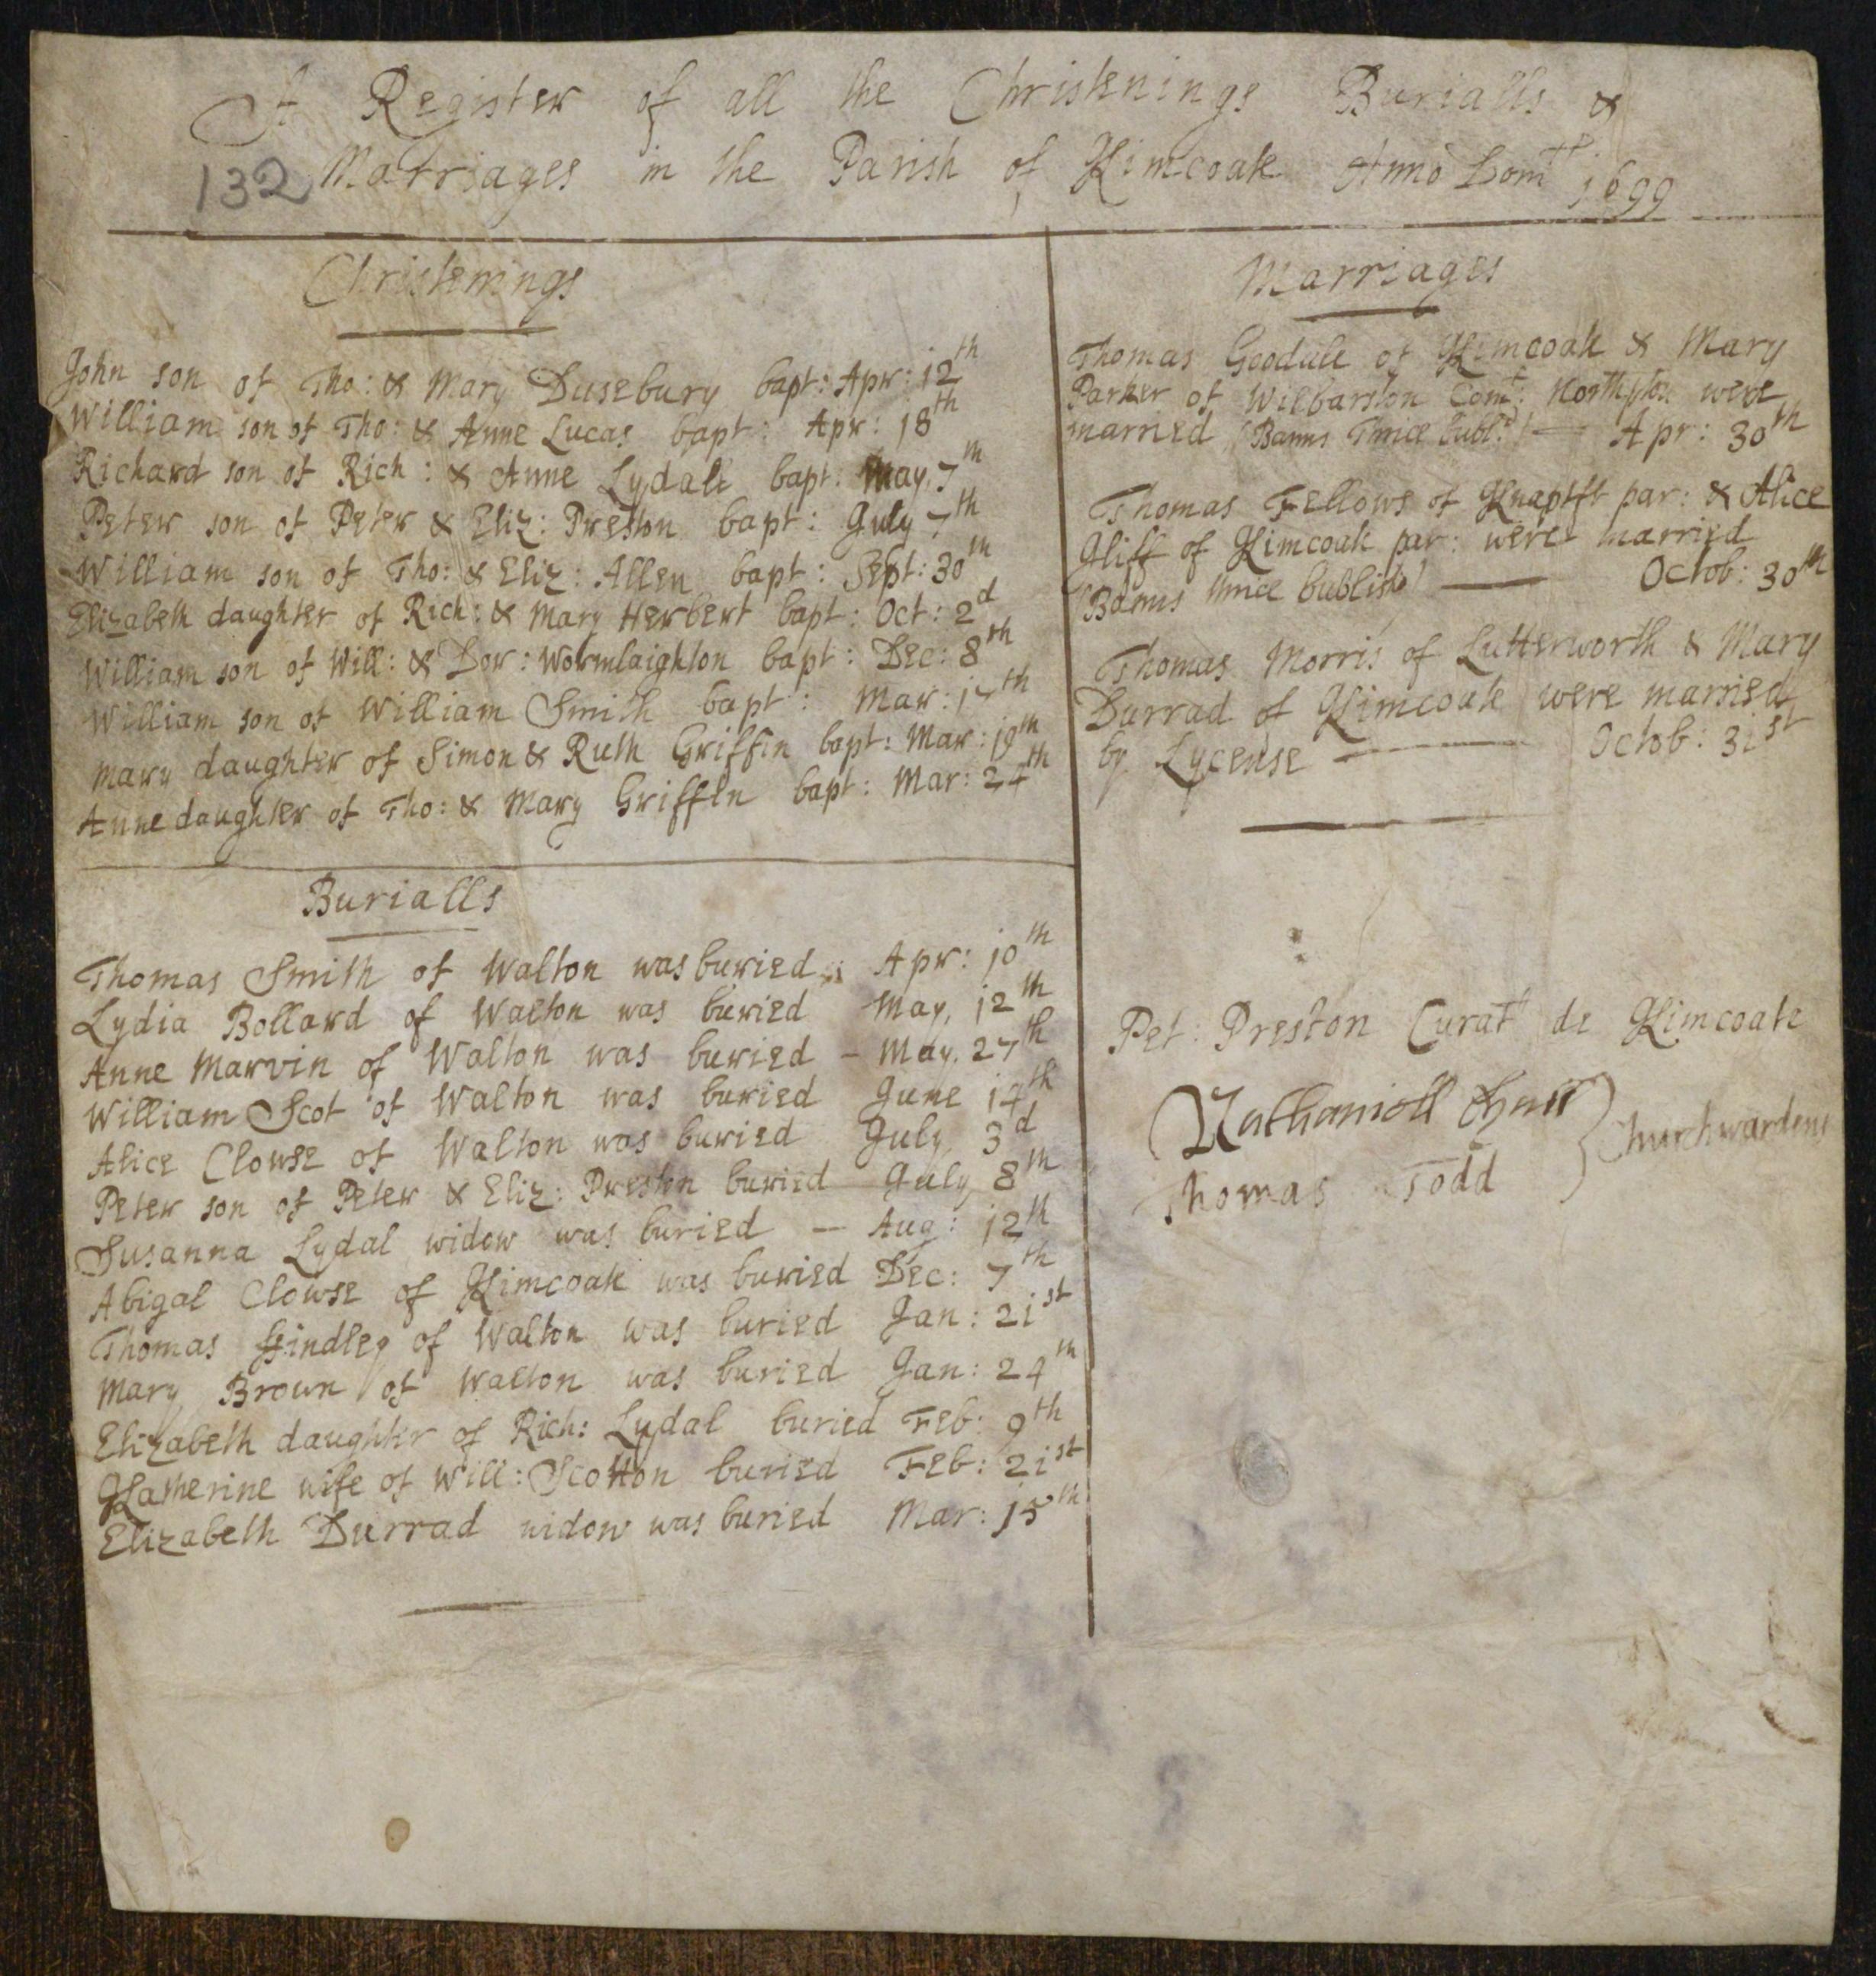 A Register of all the Christenings Burialls &
132
Marriages in the Parish of Kimcoate Anno Dom 1699
Christenings
John son of Tho: & Mary Dusebury bapt: Apr: 12th
William son of Tho: & Anne Lucas bapt: Apr: 18th
Richard son of Rich: & Anne Lydall bapt: May 7th
Peter son of Peter & Eliz: Preston bapt: July 7th
William son of Tho: & Eliz: Allen bapt: Sept: 30th
Elizabeth daughter of Rich: & Mary Herbert bapt: Oct: 2d
William son of Will: & Dor: Wormlaighton bapt: Dec: 8th
William son of William Smith bapt: Mar: 17th
Mary daughter of Simon & Ruth Griffin bapt: Mar: 19th
Anne daughter of Tho: & Mary Griffin bapt: Mar: 24th
Burialls
Thomas Smith of Walton was buried Apr: 10th
Lydia Bollard of Walton was buried May, 12th
Anne Marvin of Walton was buried - May. 27th
William Scot of Walton was buried June 14th
Alice Clowse of Walton was buried July, 3d
Peter son of Peter & Eliz: Preston buried July 8th
Susanna Lydal widow was buried - Aug: 12th
Abigal Clowse of Kimcoate was buried Dec: 7th
Thomas Hindley of Walton was buried Jan: 21st
Mary Brown of Walton was buried Jan: 24th
Elizabeth daughter of Rich: Lydal buried Feb: 9th
Katherine wife of Will: Scotton buried Feb: 21st
Elizabeth Durrad widow was buried Mar: 15th
Marriages
Thomas Goodale of Kimcoate & Mary
Parker of Wilbarston Comt: Northpton were
married (Banns Thrice publ:d) — Apr: 30th
Thomas Fellows of Knaptft par: & Alice
Iliff of Kimcoate par: were married
(Banns thrice publish) — Octob: 30th
Thomas Morris of Lutterworth & Mary
Durrad of Kimcoate were married
by Lycense — Octob: 31st
Pet: Preston Curat de Kimcoate
Nathaniell
Thomas Todd } Churchwardens